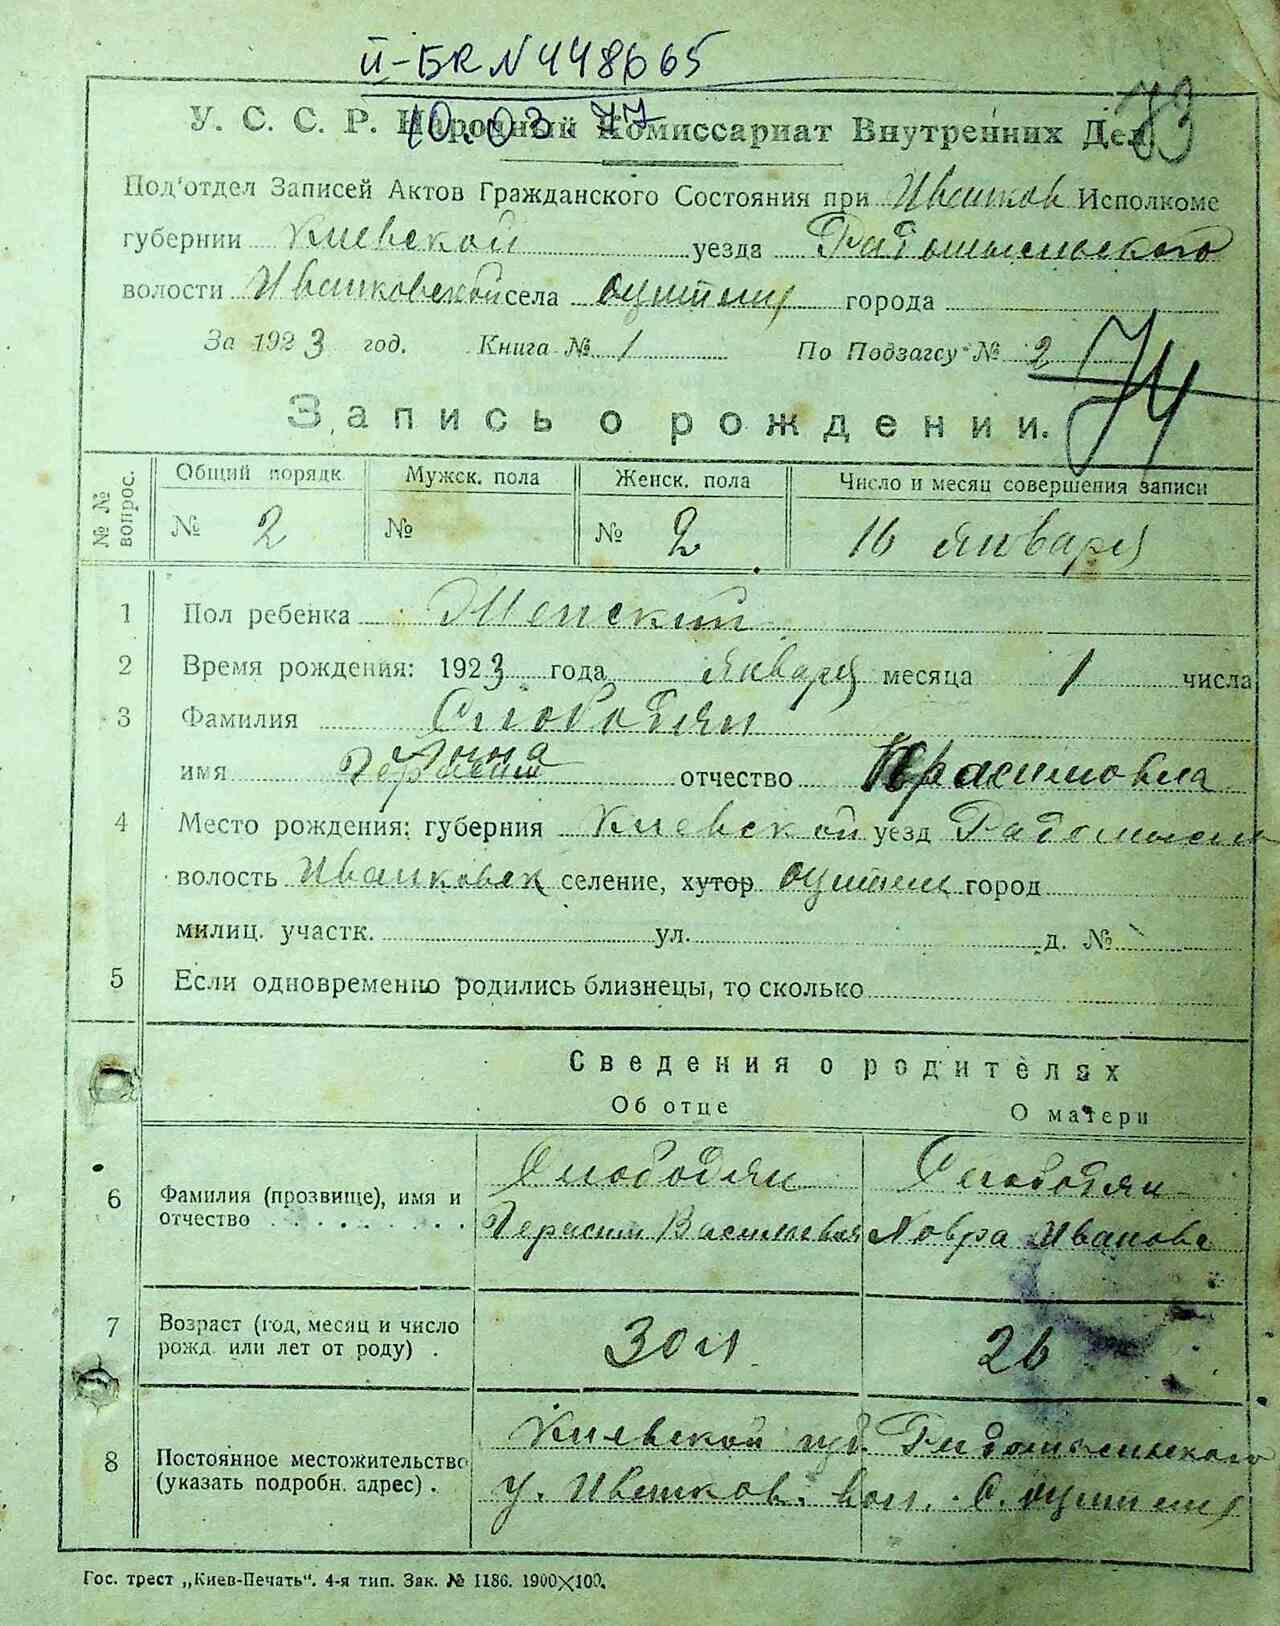 ІІ-БК N 448665
10.03.77
73
У. С. С. Р. Народный Комиссариат Внутренних Дел
Под'отдел Записей Актов Гражданского Состояния при Иванков Исполкоме
губернии Киевской уезда Радомысльского
волости Иванковской села города
За 1923 год. Книга № 1 По Подзагсу № 2
74
Запись о рождении.
№ № вопрос. Общий порядк. Мужск. пола Женск. пола Число и месяц совершения записи
№ 2 № № 2 16 января
1 Пол ребенка Женский
2 Время рождения: 1923 года января месяца 1 числа
3 Фамилия Слободян
Анна
имя отчество
4 Место рождения: губерния Киевской уезд Радомысл
волость Иванковск селение, хутор город
милиц. участк. ул. д. №
5 Если одновременно родились близнецы, то сколько
Сведения о родителях
Об отце О матери
6 Фамилия (прозвище), имя и отчество Слободян Слободян
Герасим Васильевич Ловра Иванова
7 Возраст (год, месяц и число рожд. или лет от роду) . 30 л 26
8 Постоянное местожительство (указать подробн. адрес) . Киевской губ. Радомысльского
у. Иванков. вол. С.
Гос. трест „Киев-Печать". 4-я тип. Зак. № 1186. 1900×100.